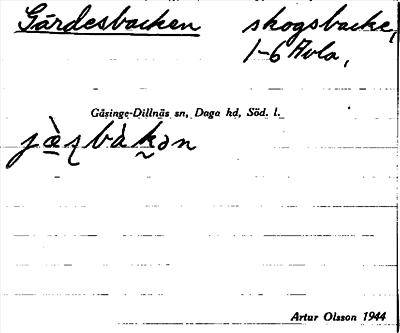 Gärdesbacken skogsbacke,
1-6 Avla,
Gåsinge-Dillnäs sn, Daga hd, Söd. l.
Artur Olsson 1944